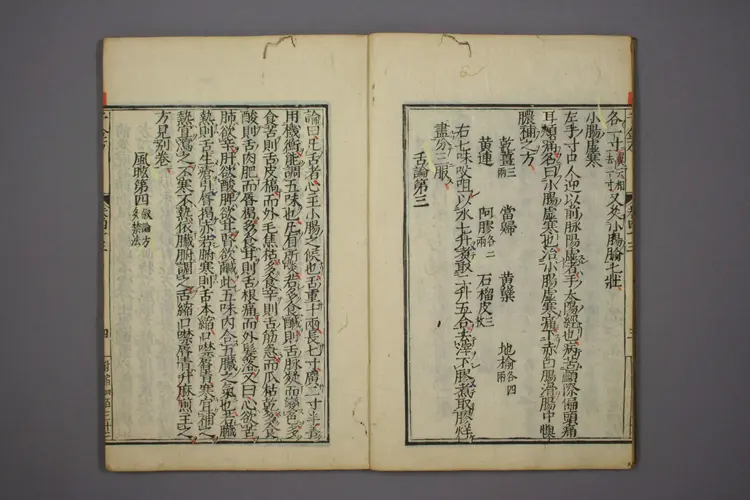 各一寸又灸小腸腧七壯
小腸虛寒
左手寸口人迎以前脉陽虛者手太陽經也病苦顱際偏頭痛
耳頰痛名曰小腸虛寒也治小腸虛寒痛下赤白腸滑腸中懊
憹補之方
乾薑三兩 當歸 黃蘗 地榆各四兩
黃連 阿膠各二兩 石榴皮三枚
右七味㕮咀以水七升煮取二升五合去滓下膠煮取膠烊
盡分三服
舌論第三
論曰凡舌者心主小腸之候也舌重十兩長七寸廣二寸半善
用機衡能調五味也凡有所啖若多食鹹則舌脉凝而變色多
食苦則舌皮槁而外毛焦枯多食辛則舌筋急而爪枯乾多食
酸則舌肉肥而唇揭多食甘則舌根痛而外髮落又曰心欲苦
肺欲辛肝欲酸脾欲甘腎欲鹹此五味內合五臟之氣也若臟
熱則舌生瘡引唇揭赤若腑寒則舌本縮口噤唇青寒宜補之
熱宜瀉之不寒不熱依臟腑調之舌縮口噤唇青升麻煎主之
方見別卷
風眩第四